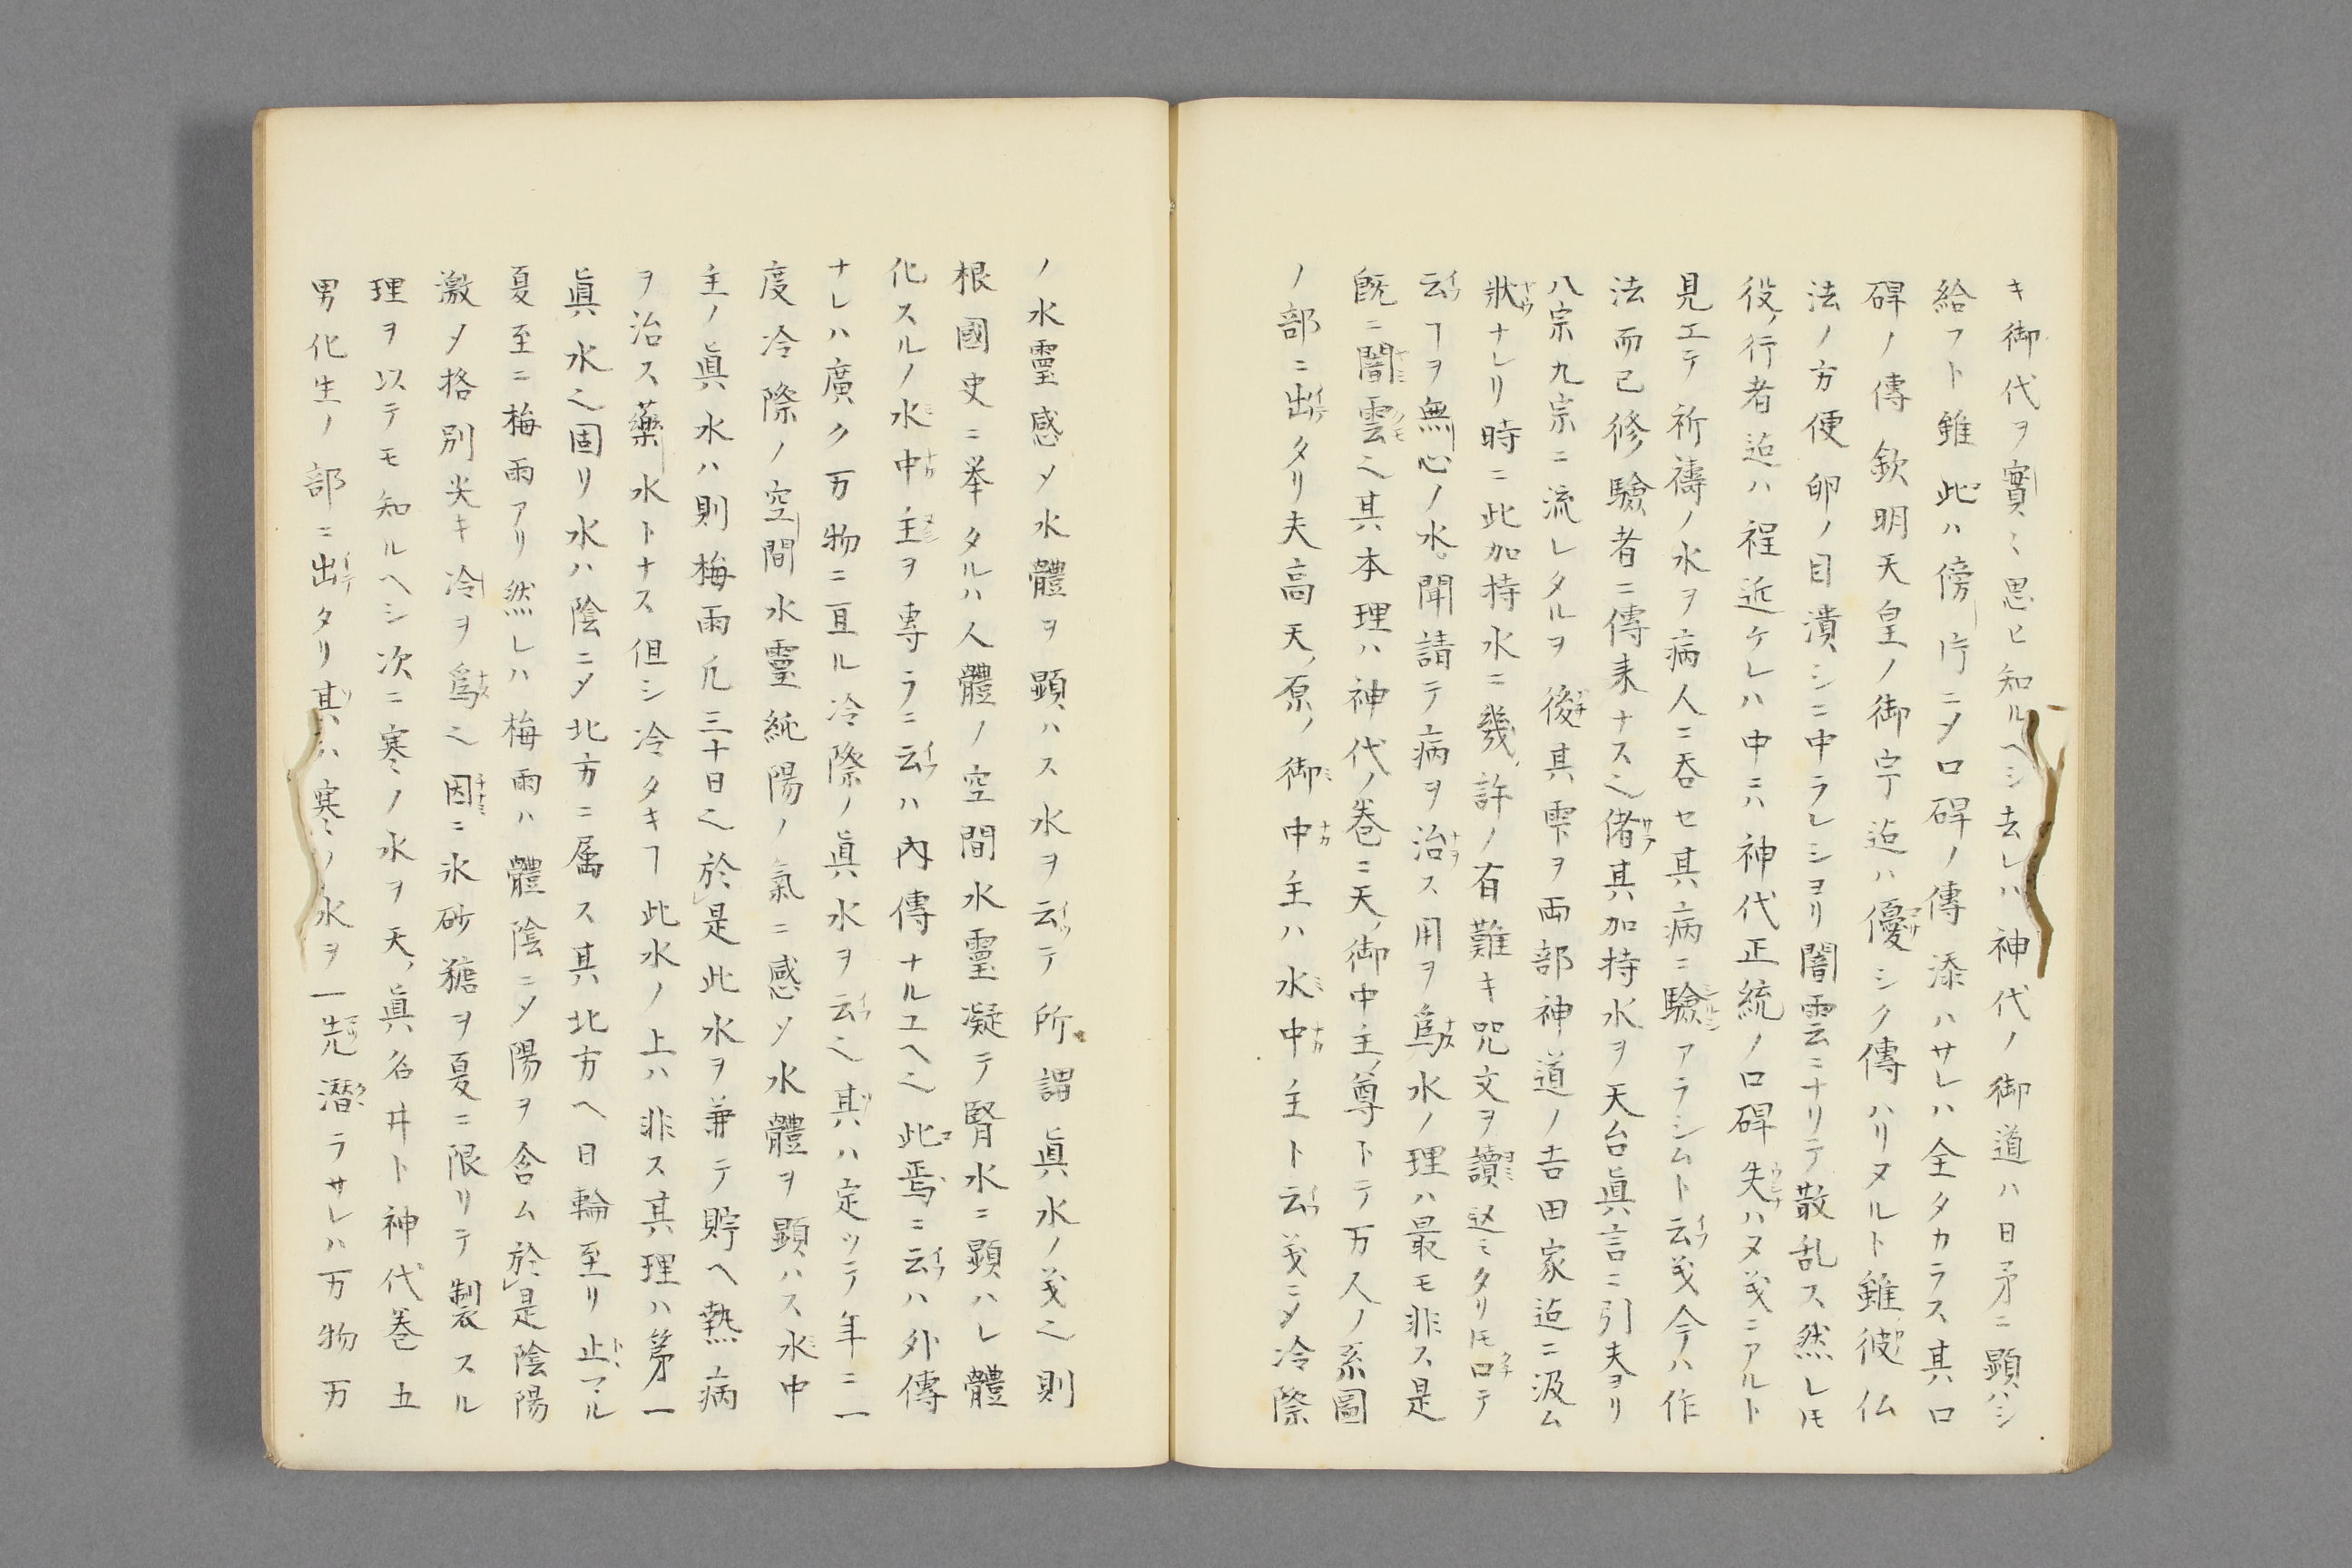 キ御代ヲ實ミ思ヒ知ルヘシ去レハ神代ノ御道ハ日矛ニ顕ハシ
給フト雖此ハ傍片ニ〆口碑ノ傳添ハサレハ全タカラス其口
碑ノ傳欽明天皇ノ御宇迠ハ優シク傳ハリヌルト雖彼仏
法ノ方便卵ノ目潰シニ中ラレショリ闇雲ニナリテ散乱ス然レ𪜈
役ノ行者迠ハ程近ケレハ中ニハ神代正統ノ口碑失ハヌ義ニアルト
見エテ祈禱ノ水ヲ病人ニ呑セ其病ニ驗アラシムト云義今ハ作
法而已修驗者ニ傳来ナス之偖其加持水ヲ天台眞言ニ引夫ヨリ
八宗九宗ニ流レタルヲ後其雫ヲ両部神道ノ吉田家迠ニ汲ム
狀ナレリ時ニ此加持水ニ幾許ノ有難キ咒文ヲ讀込ミタリ𪜈口テ
云ヿヲ無心ノ水聞請テ病ヲ治ス用ヲ爲水ノ理ハ最モ非ス是
旣ニ闇雲之其本理ハ神代ノ巻ニ天御中主尊トテ万人ノ系圖
ノ部ニ出タリ夫高天原ノ御中主ハ水中主ト云義ニ〆冷際
ノ水靈感〆水體ヲ顕ハス水ヲ云テ所謂眞水ノ義之則
根國史ニ挙タルハ人體ノ空間水靈凝テ腎水ニ顕ハレ體
化スルノ水中主ヲ專ラニ云ハ內傳ナルユヘ之此焉ニ云ハ外傳
ナレハ廣ク万物ニ亘ル冷際ノ眞水ヲ云之其ハ定ッテ年ニ一
度冷際ノ空間水靈純陽ノ氣ニ感〆水體ヲ顕ハス水中
主ノ眞水ハ則梅雨凢三十日之於是此水ヲ兼テ貯ヘ熱病
ヲ治ス藥水トナス但シ冷タキヿ此水ノ上ハ非ス其理ハ第一
眞水之固リ水ハ陰ニ〆北方ニ属ス其北方ヘ日輪至リ止マル
夏至ニ梅雨アリ然レハ梅雨ハ體陰ニ〆陽ヲ含ム於是陰陽
激〆格別尖キ冷ヲ爲之因ニ氷砂糖ヲ夏ニ限リテ製スル
理ヲ以テモ知ルヘシ次ニ寒ノ水ヲ天眞名井ト神代巻五
男化生ノ部ニ出タリ其ハ寒ノ水ヲ一先潜ラサレハ万物万